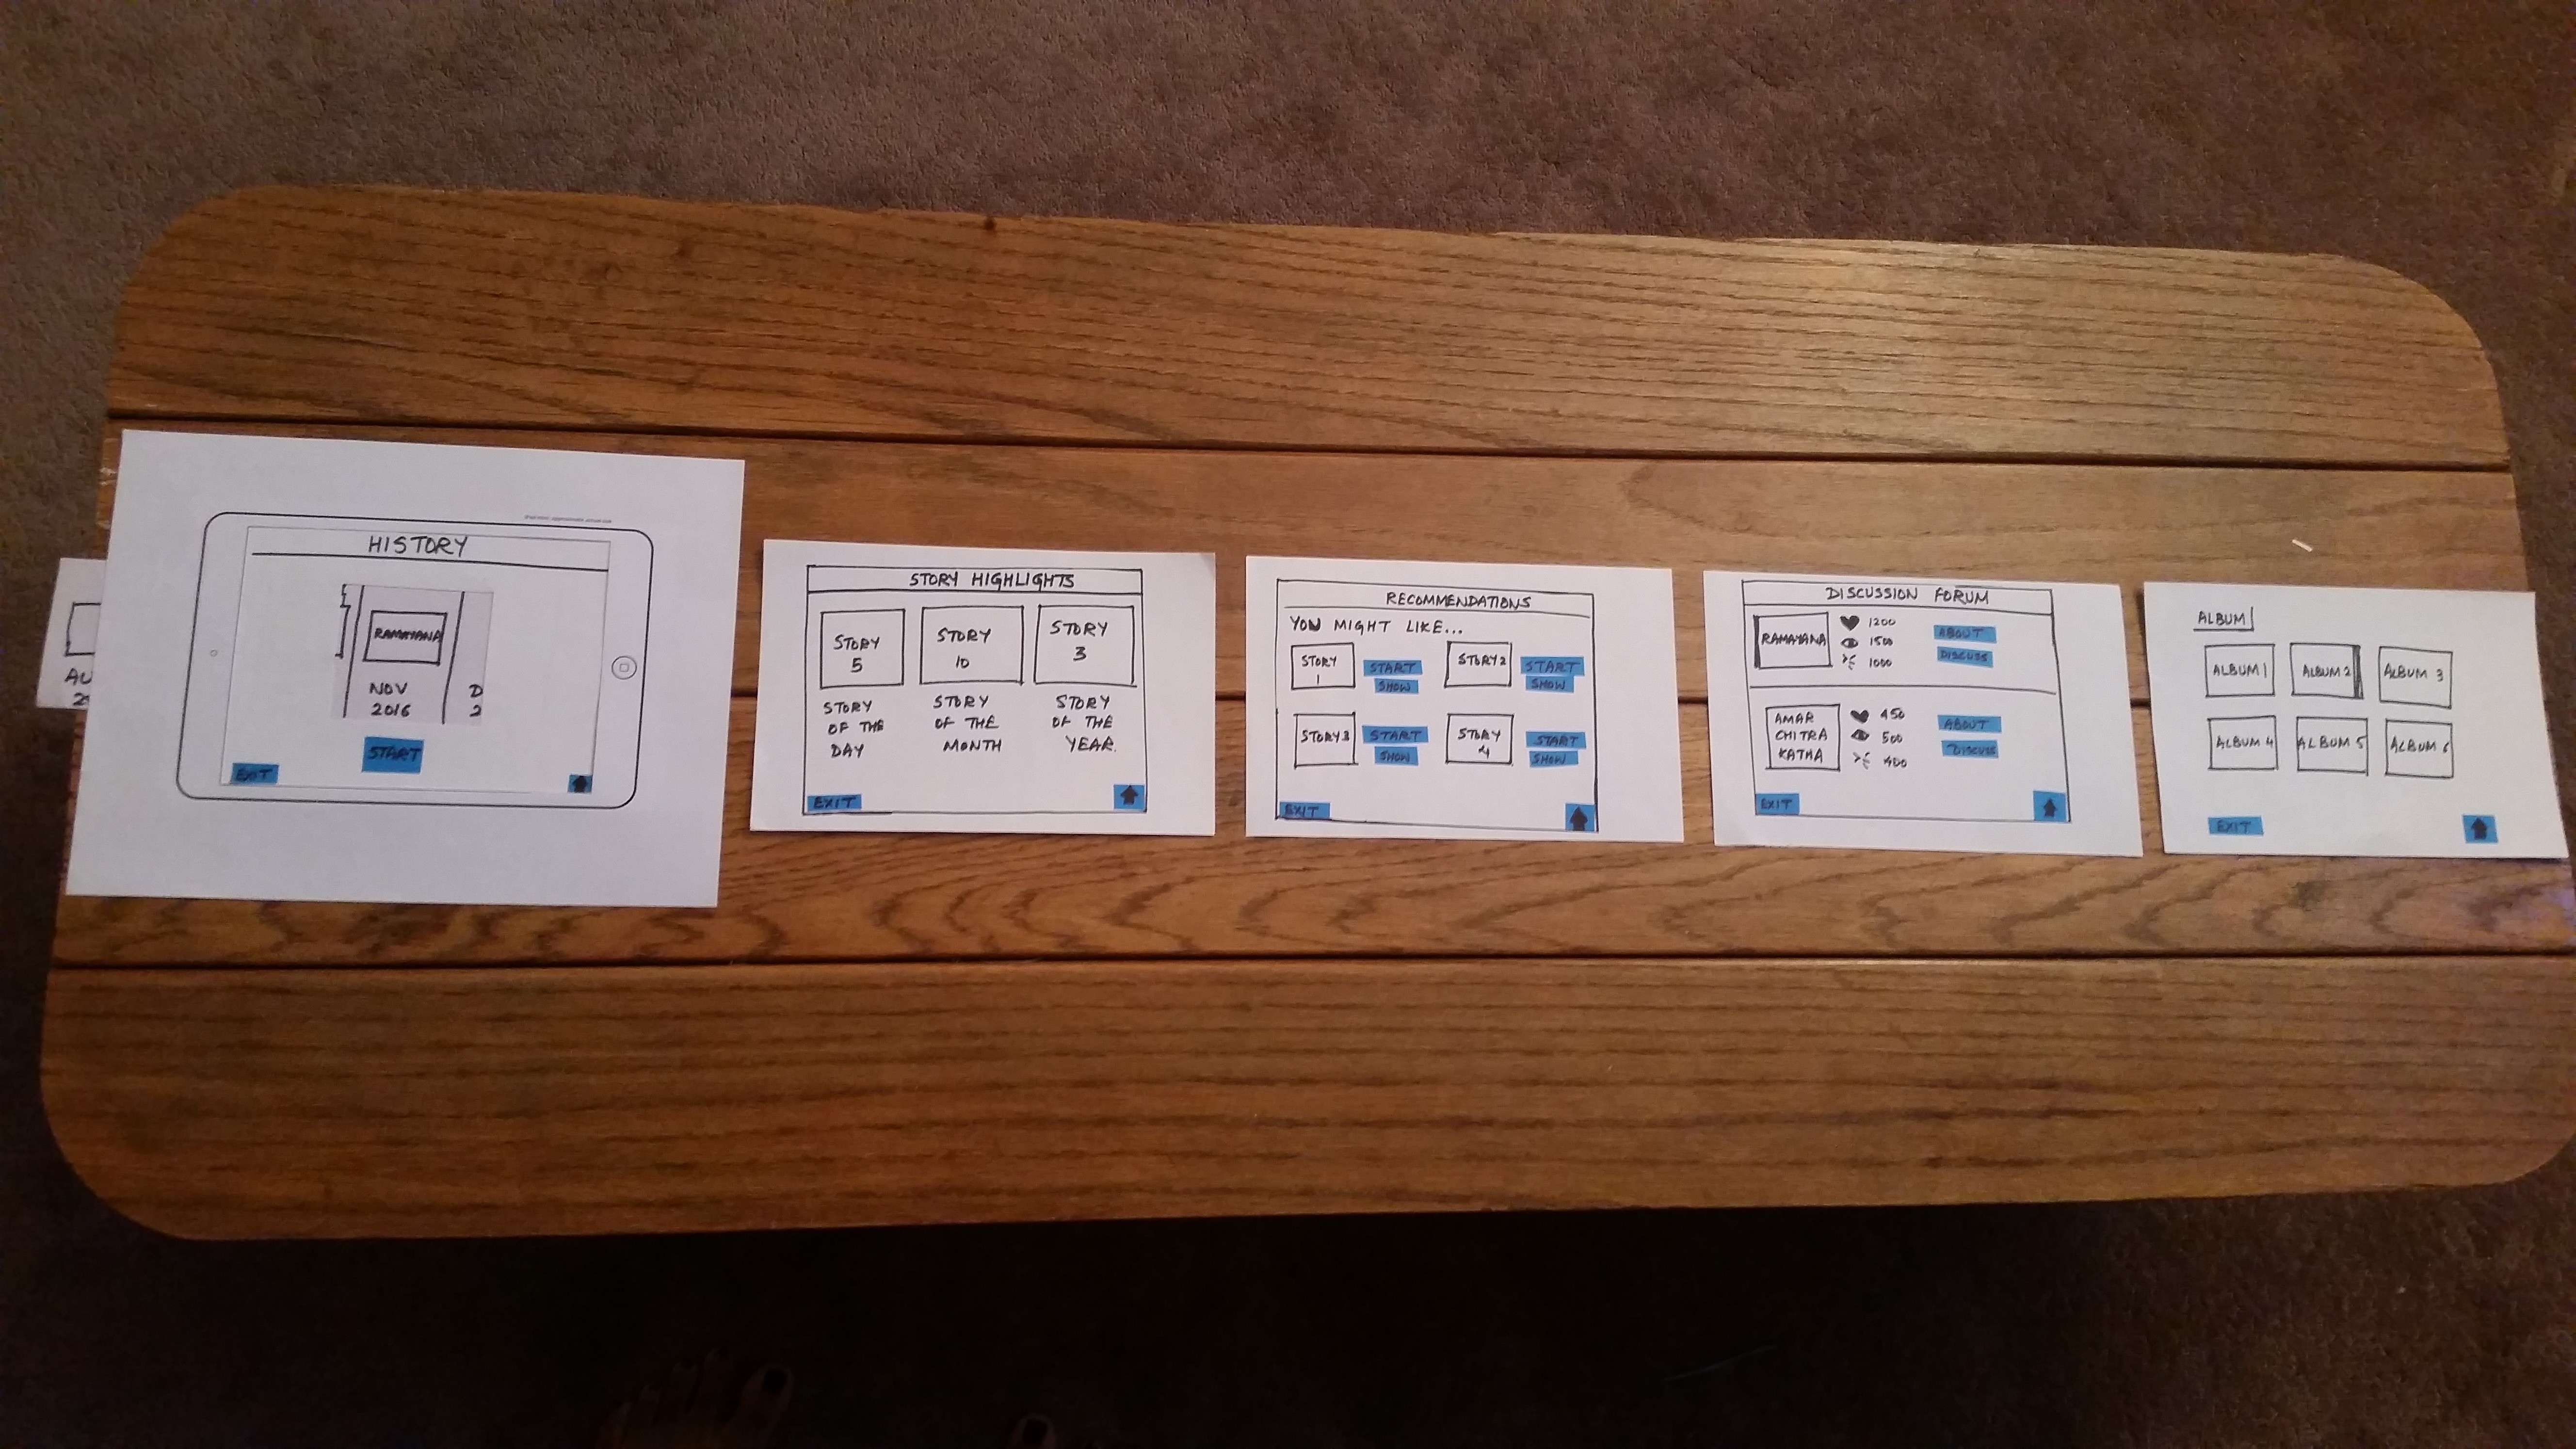 AU
HISTORY
RAMAYANA
NOV
2016
D
2
START
EXIT
STORY HIGHLIGHTS
STORY
5
STORY
10
STORY
3
STORY
OF THE
DAY
STORY
OF THE
MONTH
STORY
OF THE
YEAR.
EXIT
RECOMMENDATIONS
YOU MIGHT LIKE...
STORY
1
START
SHOW
STORY 2
START
SHOW
STORY 3
START
SHOW
STORY
4
START
SHOW
EXIT
DISCUSSION FORUM
RAMAYANA
1200
1500
1000
ABOUT
DISCUSS
AMAR
CHITRA
KATHA
450
500
400
ABOUT
DISCUSS
EXIT
ALBUM
ALBUM 1
ALBUM 2
ALBUM 3
ALBUM 4
ALBUM 5
ALBUM 6
EXIT